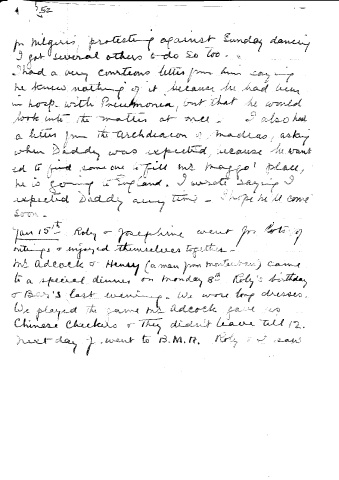 for Nilgiris, protesting against Sunday dancing
I got several others to do so too.
I had a very courteous letter from him saying
he knew nothing of it, because he had been
in hosp. with Pneumonia, but that he would
look into the matter at once. I also had
a letter from the Archdeacon of Madras, asking
when Daddy was expected, because he want-
ed to find someone to fill Mr Maggs' place,
he is going to England. I wrote saying I
expected Daddy any time - I hope he'll come
soon.
Jan 15th Roly & Josephine went for lots of
outings & enjoyed themselves together -
Mr Adcock & Henry (a man from) came
to a special dinner on Monday 8th Roly's birthday
& Bar's last evening. We wore long dresses.
We played the game Mr Adcock gave us
Chinese Checkers & they didn't leave till 12.
Next day J. went to B.M.R. Roly & I saw